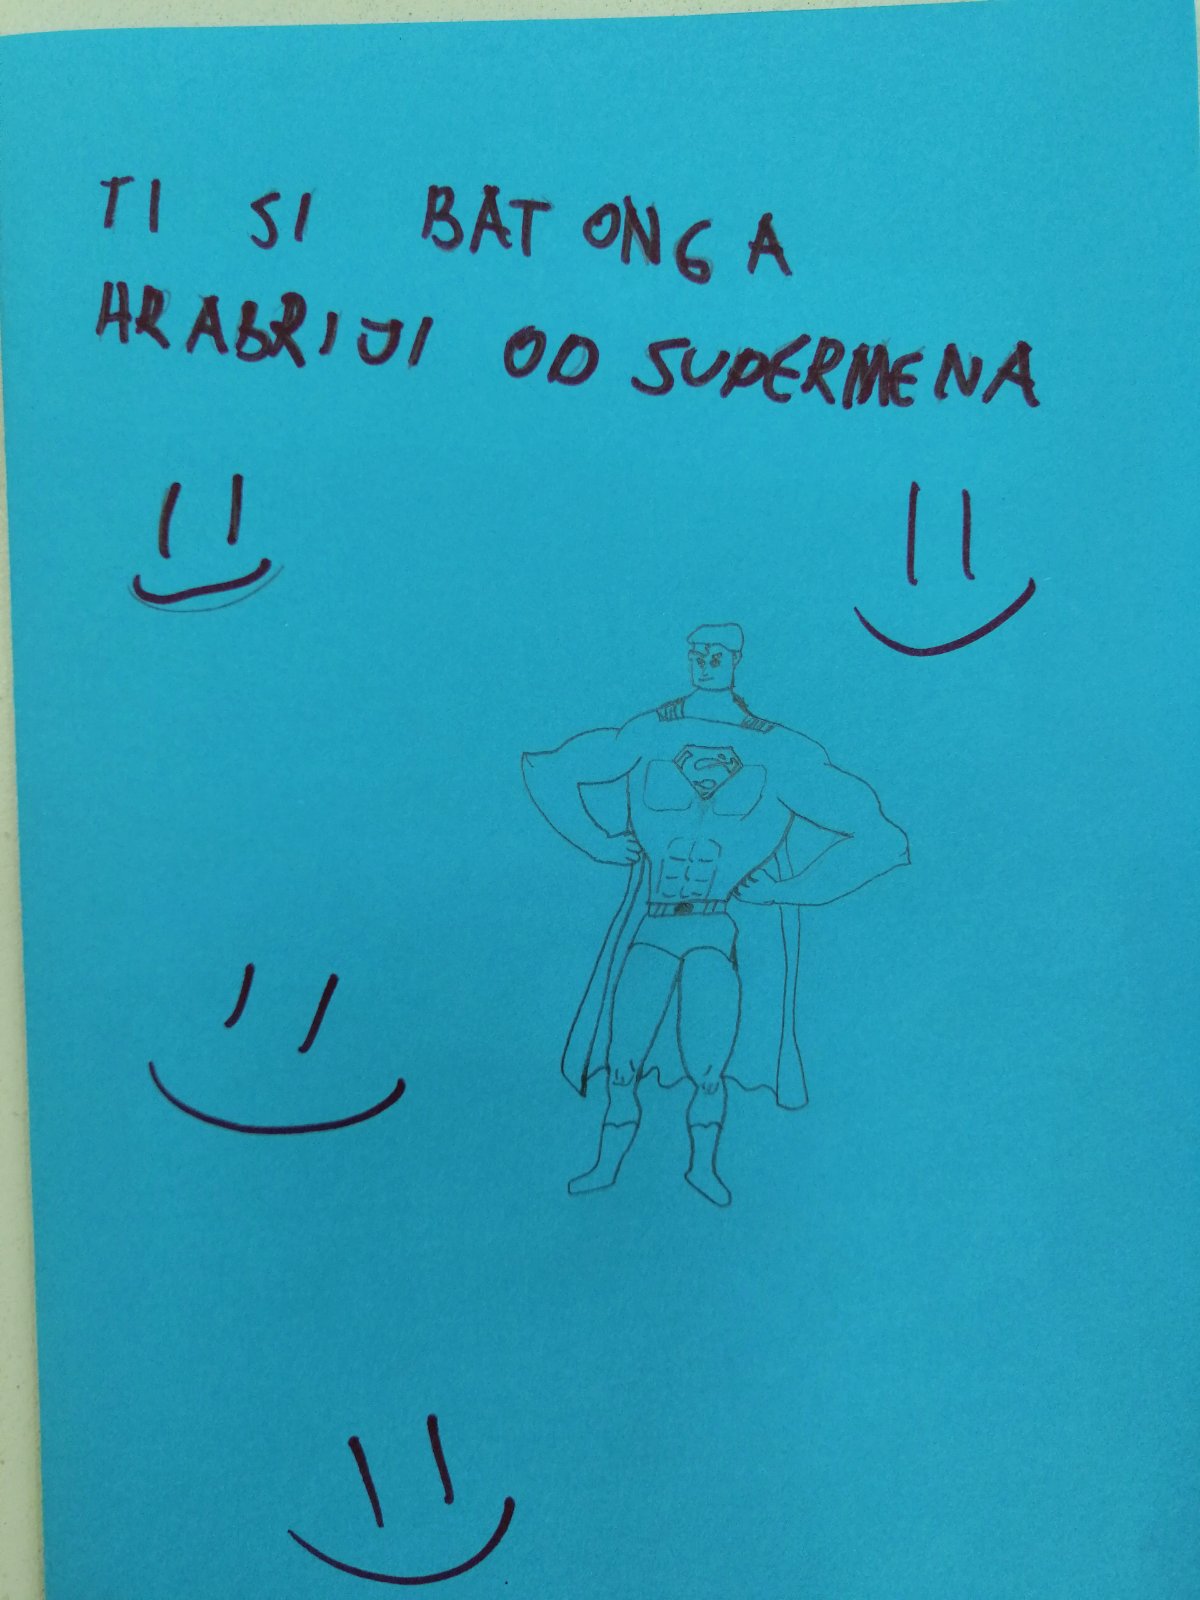 TI SI BATONGA
HRABRIJI OD SUPERMENA
S